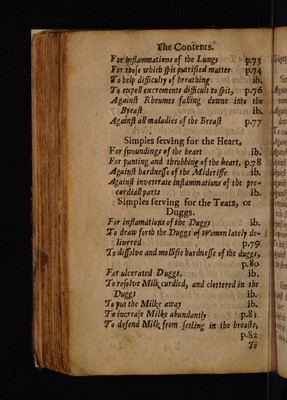 The Contents.
For inflammations of the Lungs p.73
For those which spit putrified matter p.74
To help difficulty of breathing ib.
To expell excrements difficult to spit, p.76
Against Rheumes falling downe into the
Breast ib.
Against all maladies of the Breast p.77
Simples serving for the Heart,
For swoundings of the heart ib.
For panting and throbbing of the heart, p.78
Against hardnesse of the Mideriffe ib.
Against inveterate inflammations of the pre-
cordiall parts ib.
Simples serving for the Teats, or
Duggs.
For inflamations of the Duggs ib.
To draw forth the Duggs of women lately de-
livered p.79
To dissolve and mollifie hardnesse of the duggs,
p.80
For ulcerated Duggs, ib.
To resolve Milk curdled, and clottered in the
Duggs ib.
To put the Milke away ib.
To increase Milke abundantly p.81
To defend Milk from setling in the breasts,
p.82
To